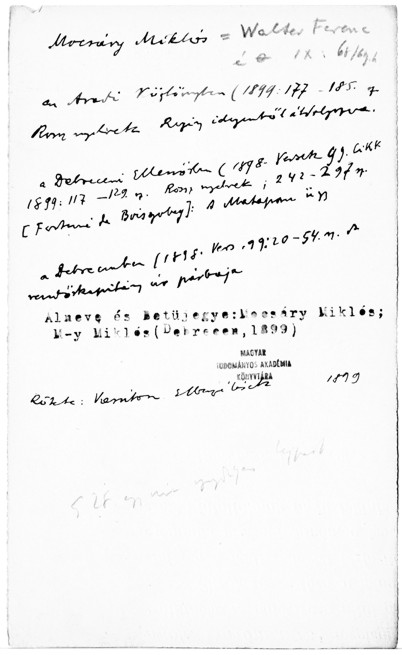 Mocsáry Miklós = Walter Ferenc
IX: 68/69.h
az Aradi Közlönyben (1899: 177 - 185. sz
Rossz nyelvek Regény idegenből átdolgozva.
a Debreceni Ellenőrben (1898. Versek 99. Cikk
1899: 117 - 129 sz. Rossz nyelvek; 242 - 297 sz.
[Fortuné de Boisgobey]: A Matapan ügy
a Debreczenben (1898. Vers. 99: 20 - 54. sz. A
rendőrkapitány úr párbaja
Álneve és Betűjegye: Mocsáry Miklós;
M-y Miklós (Debrecen, 1899)
MAGYAR
TUDOMÁNYOS AKADÉMIA
KÖNYVTÁRA
1899